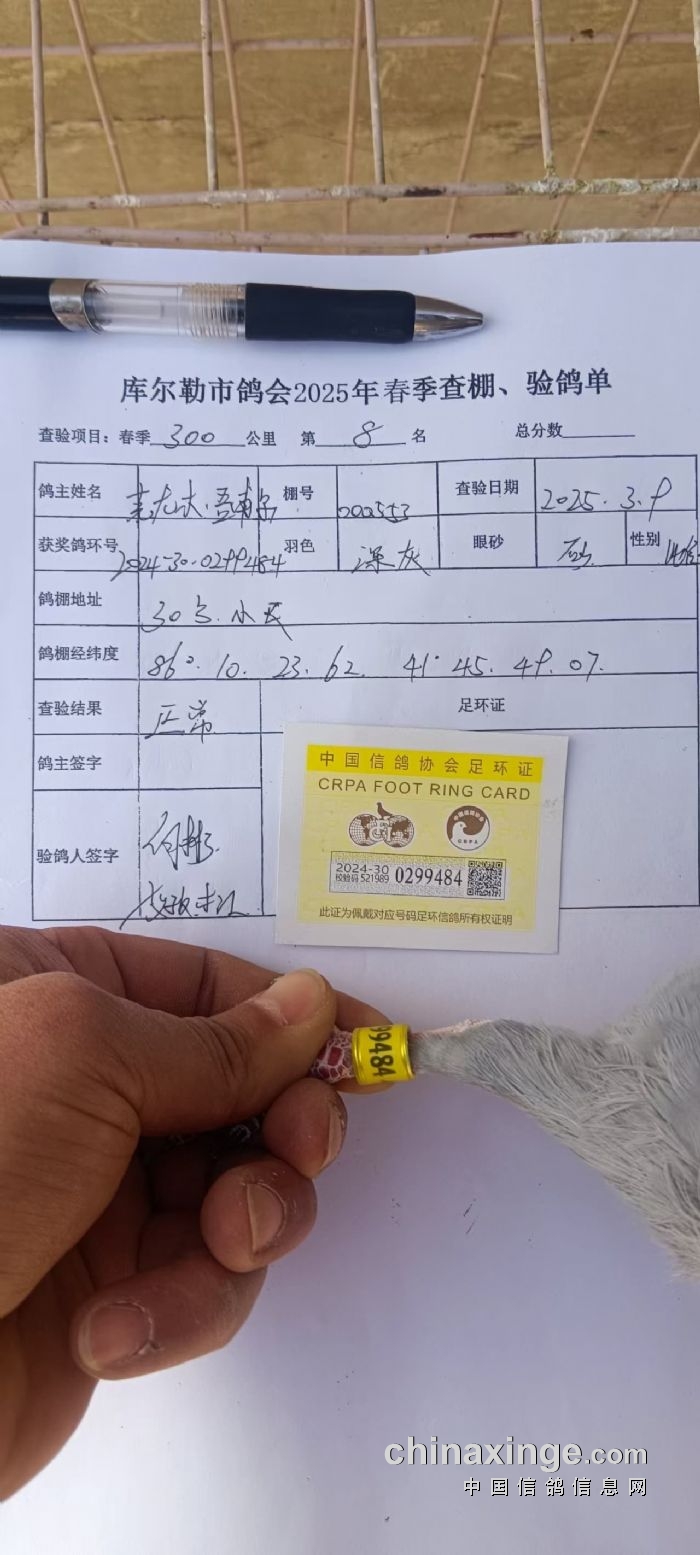 库尔勒市鸽会2025年春季查棚、验鸽单
查验项目：春季 300 公里 第 8 名 总分数
鸽主姓名 棚号 查验日期 2025.3.9
获奖鸽环号 2024-30-0299484 羽色 深灰 眼砂 砂 性别
鸽棚地址 30 小区
鸽棚经纬度 86°.10.23.62 41.45.49.07.
查验结果 正常 足环证
鸽主签字
验鸽人签字
中国信鸽协会足环证
CRPA FOOT RING CARD
中国信鸽协会
CRPA
2024-30
校验码 521989 0299484
此证为佩戴对应号码足环信鸽所有权证明
99484
chinaxinge.com
中国信鸽信息网